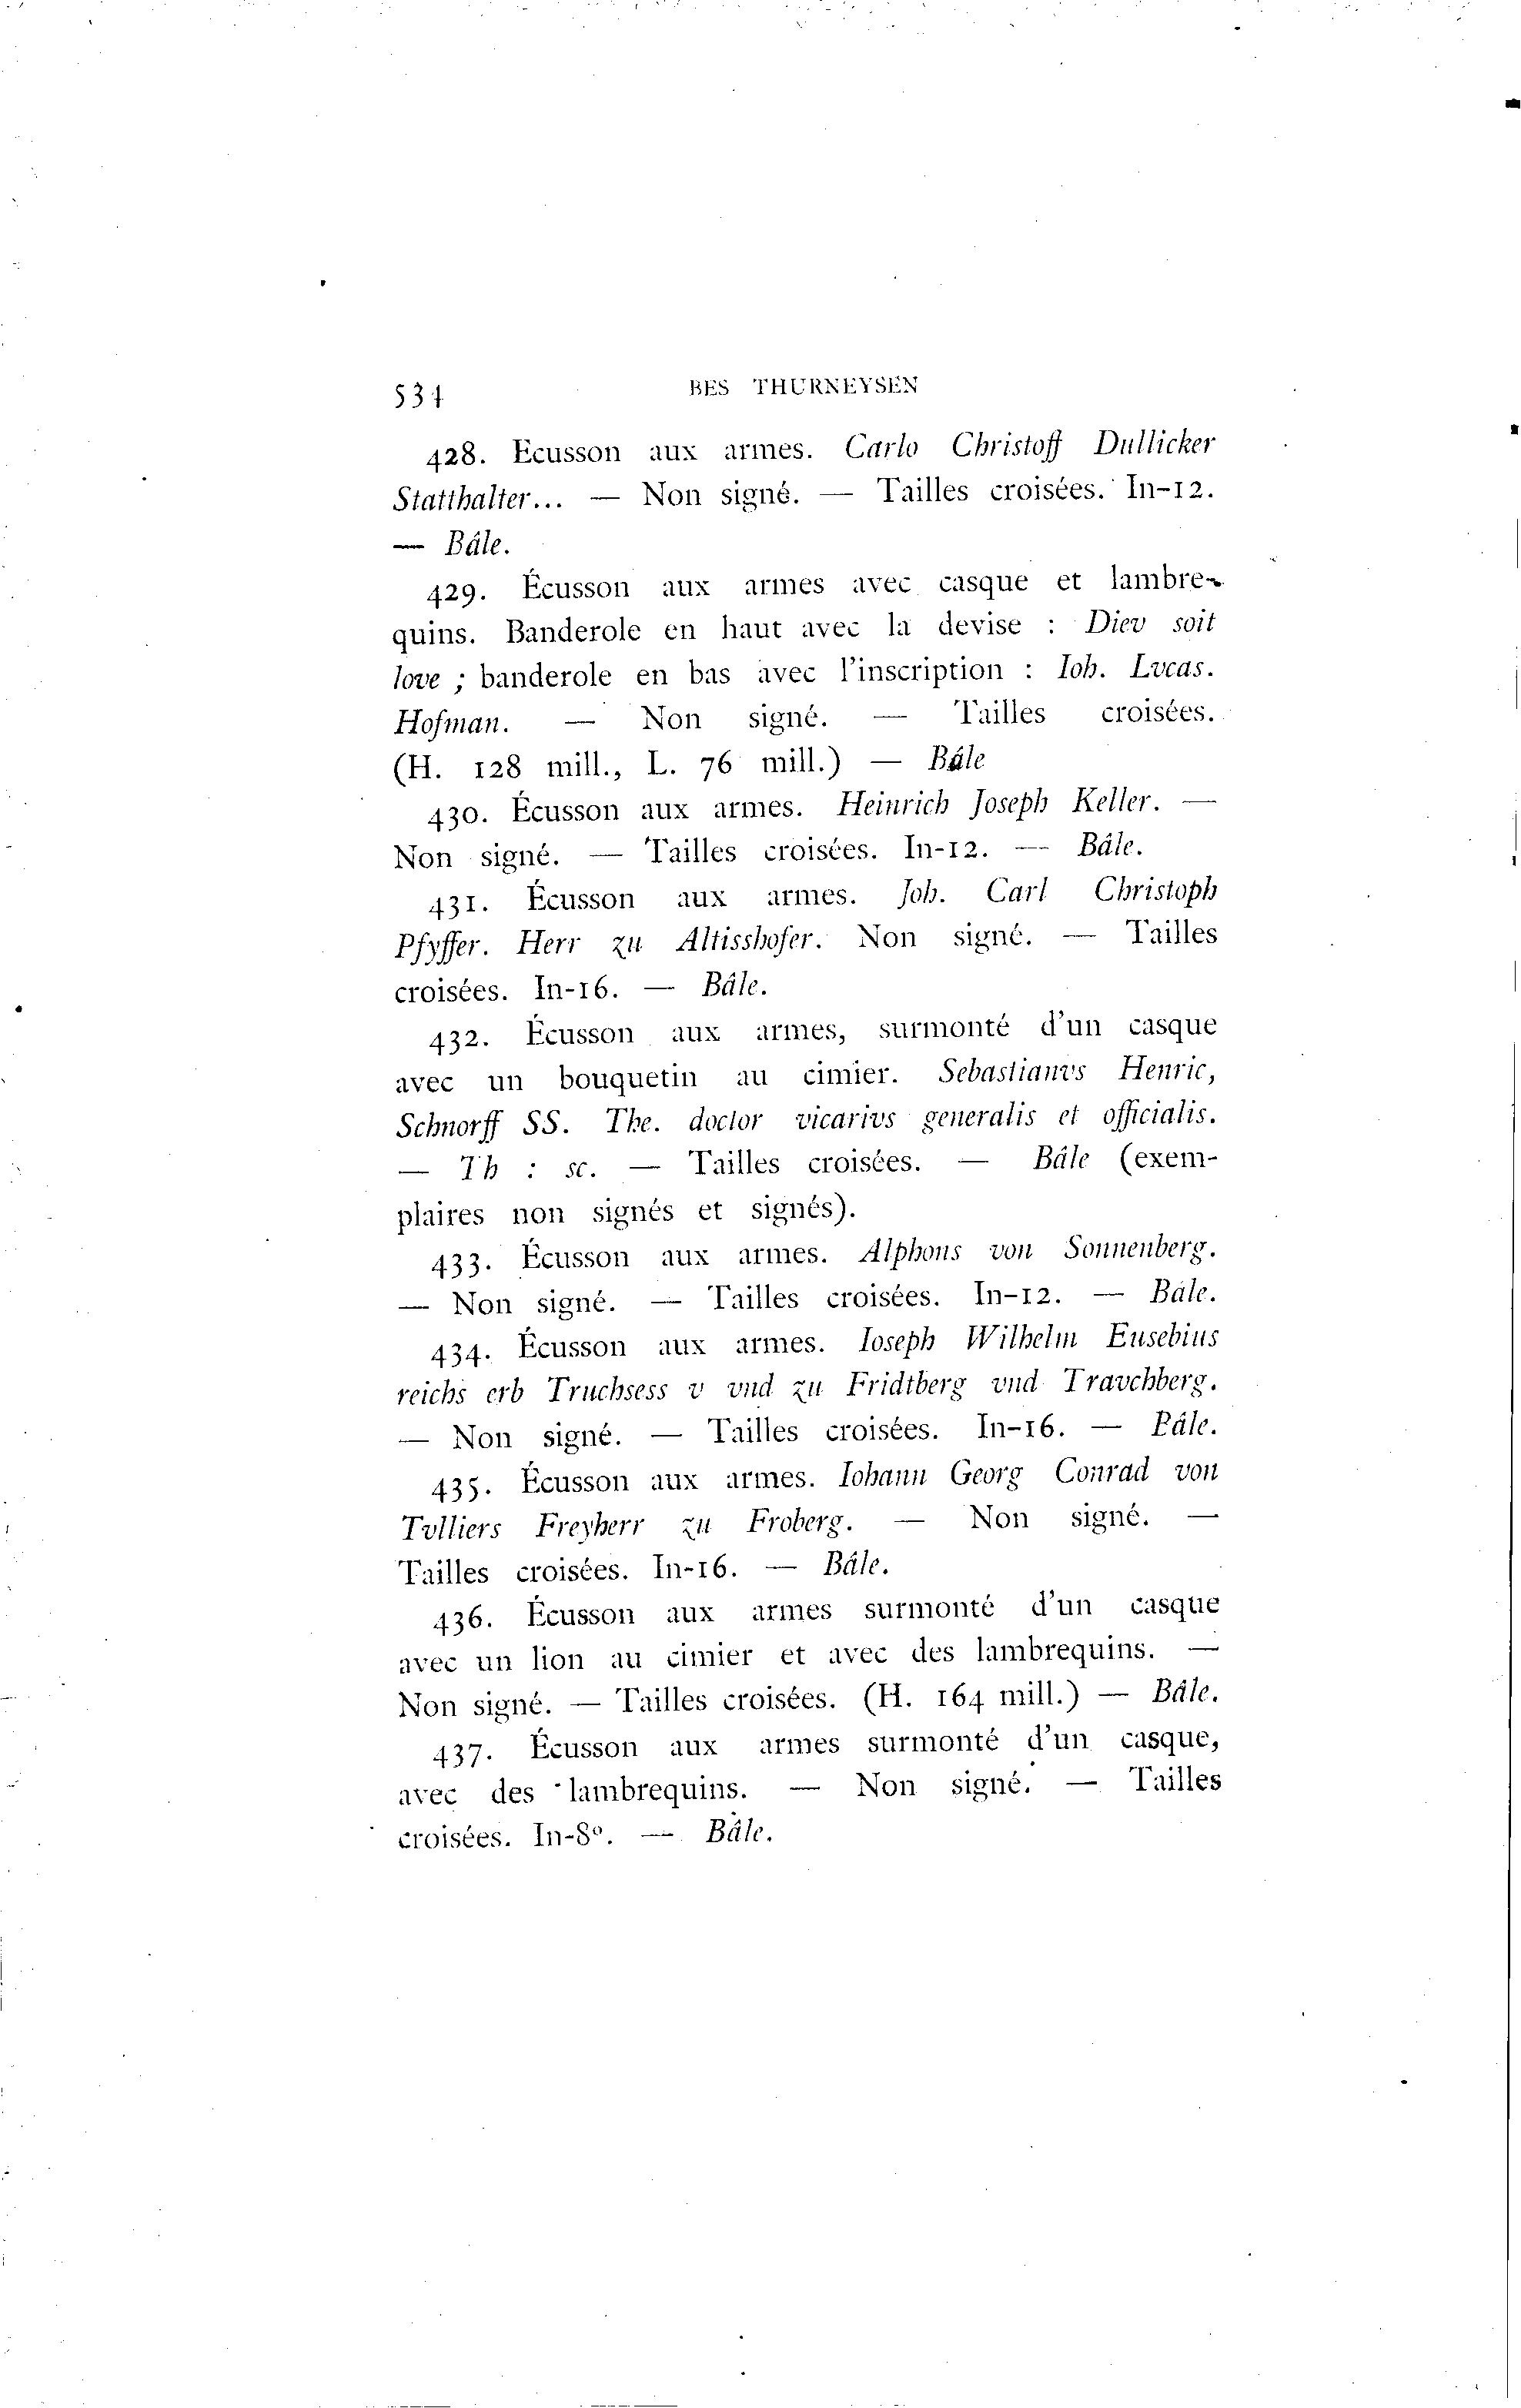 534 BES THURNEYSEN
428. Écusson aux armes. Carlo Christoff Dullicker
Statthalter... — Non signé. — Tailles croisées. In-12.
— Bâle.
429. Écusson aux armes avec casque et lambre-
quins. Banderole en haut avec la devise : Diev soit
love ; banderole en bas avec l'inscription : Ioh. Lvcas.
Hofman. — Non signé. — Tailles croisées.
(H. 128 mill., L. 76 mill.) — Bâle
430. Écusson aux armes. Heinrich Joseph Keller. —
Non signé. — Tailles croisées. In-12. — Bâle.
431. Écusson aux armes. Joh. Carl Christoph
Pfyffer. Herr zu Altisshofer. Non signé. — Tailles
croisées. In-16. — Bâle.
432. Écusson aux armes, surmonté d'un casque
avec un bouquetin au cimier. Sebastianvs Henric,
Schnorff SS. The. doctor vicarivs generalis et officialis.
— Th : sc. — Tailles croisées. — Bâle (exem-
plaires non signés et signés).
433. Écusson aux armes. Alphons von Sonnenberg.
— Non signé. — Tailles croisées. In-12. — Bâle.
434. Écusson aux armes. Ioseph Wilhelm Eusebius
reichs erb Truchsess v vnd zu Fridtberg vnd Travchberg.
— Non signé. — Tailles croisées. In-16. — Bâle.
435. Écusson aux armes. Iohann Georg Conrad von
Tvlliers Freyherr zu Froberg. — Non signé. —
Tailles croisées. In-16. — Bâle.
436. Écusson aux armes surmonté d'un casque
avec un lion au cimier et avec des lambrequins. —
Non signé. — Tailles croisées. (H. 164 mill.) — Bâle.
437. Écusson aux armes surmonté d'un casque,
avec des lambrequins. — Non signé. — Tailles
croisées. In-8°. — Bâle.